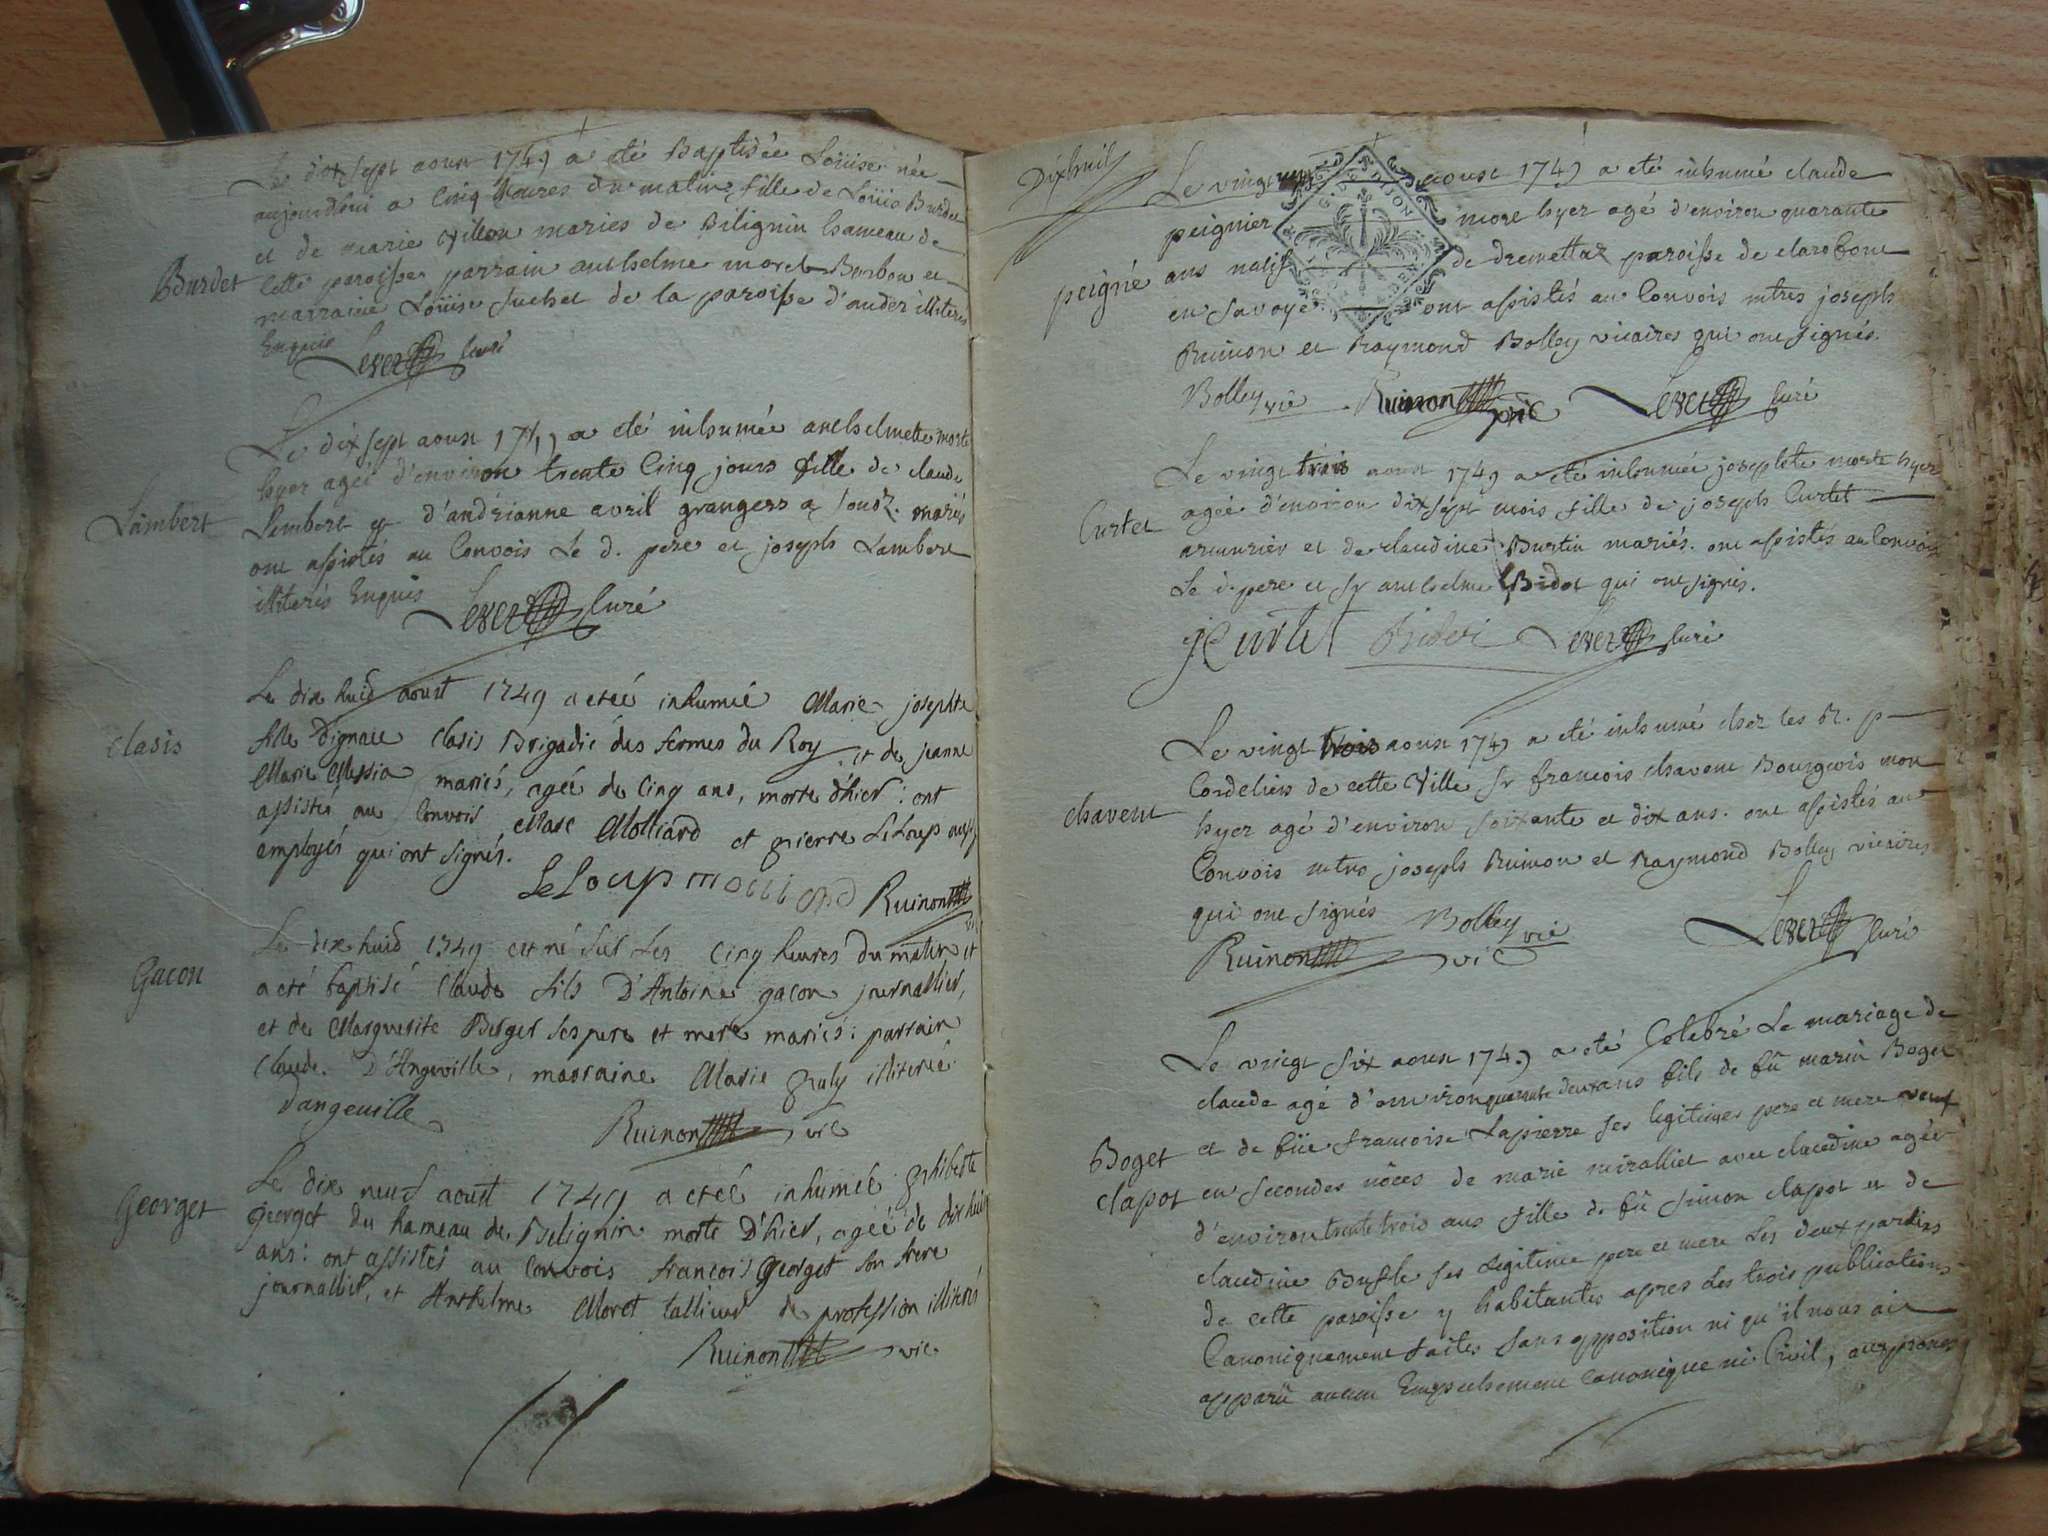 Le dix sept aoust 1749 a eté Baptisée Loüise née
aujourdhui a Cinq heures du matin, fille de Loüis Burdet
et de marie villon mariés de Bilignin hameau de
Burdet
cette paroisse parrain anthelme morel Borbon et
marraine Loüise Suchet de la paroisse d'andert illiterés
Enquis
Levet Curé
Le dix sept aoust 1749 a eté inhumée anthelmette morte
hyer agée d'environ trente Cinq jours fille de claude
Lambert
Lambert & d'andrianne avril grangers a mariés
ont assistés au Convois Le d. pere et joseph Lambert
illiterés Enquis
Levet Curé
Le dix huid aoust 1749 a eteé inhumeé Marie josephte
clasis
fille Dignace Clasis Brigadié des fermes du Roy et de jeanne
Marie Messia mariés, ageé de Cinq ans, morte d'hier: ont
assistés au Convois Marc Molliard et pierre LeLoup aussy
employés qui ont signés.
LeLoup molliard Ruinon
vic
Le dix huid 1749 est né sur Les Cinq heures du matin et
Gacon
a eté baptisé Claude fils D'Antoine gacon journallier,
et de Marguerite Berger ses pere et mere mariés: parrain
Claude D'Angeville, marraine Marie puly illitereé
Dangeuille
Ruinon vic
Le dix neuf aoust 1749 a eteé inhumeé philiberte
Georget
georget du hameau de Bilignin morte D'hier, ageé de dix huit
ans: ont assistés au Convois francois Georget son frere
journallier, et Anthelme Moret tallieur de profession illiterés
Ruinon vic
Dixhuit
Le vingt aoust 1749 a eté inhumé claude
peignier mort hyer agé d'environ quarante
peigné
ans natif de Dremettaz paroisse de clarafont
en Savoye ont assistés au Convois mtres joseph
Ruinon et Raymond Bolley vicaires qui ont signés.
Bolley vic Ruinon vic Levet Curé
Le vingt trois aoust 1749 a eté inhumée josephte morte hyer
Curtet
agée d'environ dix sept mois fille de joseph Curtet
armurier et de claudine Burtin mariés. ont assistés au Convois
Le d. pere et Sr anthelme Bidot qui ont signés.
J Curtet Levet Curé
Le vingt trois aoust 1749 a eté inhumé chez les R. p
Cordeliers de cette Ville Sr francois chavent Bourgeois mort
chavent
hyer agé d'environ soixante et dix ans. ont assistés au
Convois mtres joseph Ruinon et Raymond Bolley vicaires
qui ont signés Bolley vic
Ruinon vic Levet Curé
Le vingt six aoust 1749 a eté Celebré Le mariage de
claude agé d'environ quarante deux ans fils de fû marin Boget
Boget
et de füe francoise Lapierre ses legitimes pere et mere veuf
clapot
en secondes nôces de marie miralliet avec claudine agée
d'environ trente trois ans fille de fû simon clapot et de
claudine Buffle ses legitime pere et mere Les deux parties
de cette paroisse y habitantes apres Les trois publications
Canoniquement faites sans opposition ni qu'il nous ait
apparû aucun Empechement canonique ni Civil, aux prones